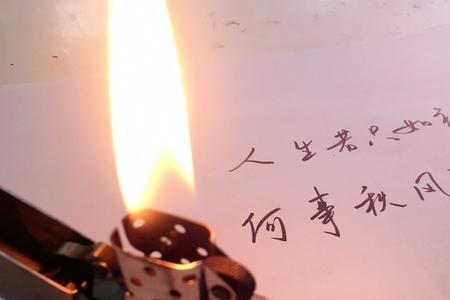 人生若只如
何事秋风